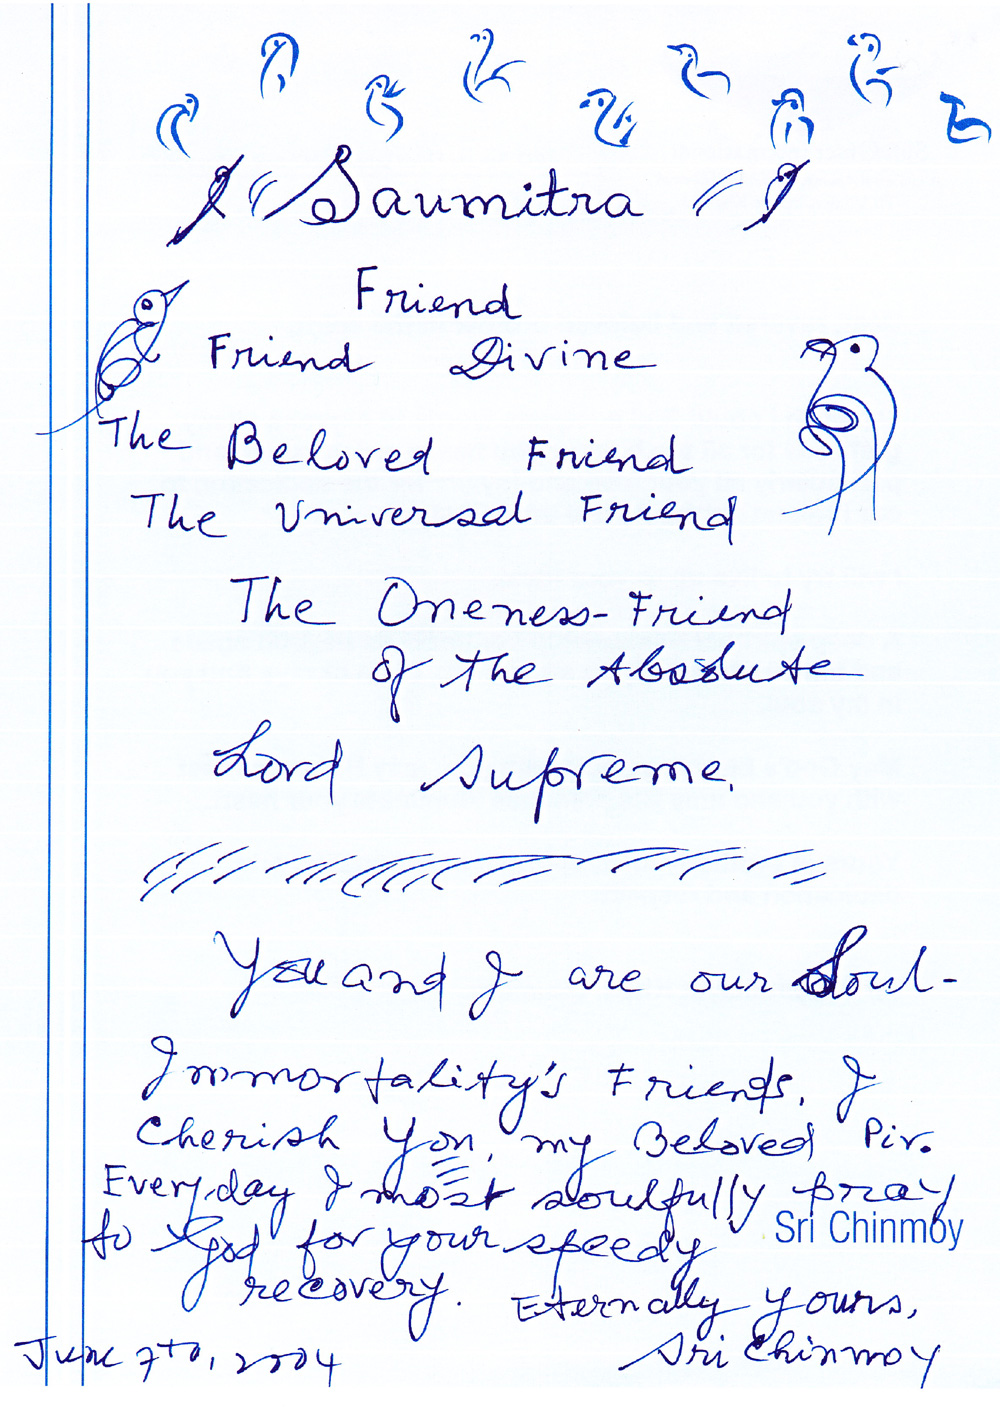 Saumitra
Friend
Friend Divine
The Beloved Friend
The Universal Friend
The Oneness-Friend
of the Absolute
Lord Supreme.
You and I are our Soul-
Immortality's Friends. I
Cherish You, my Beloved Pir.
Everyday I most soulfully pray
Sri Chinmoy
to God for your speedy
recovery. Eternally yours,
June 7th, 2004 Sri Chinmoy